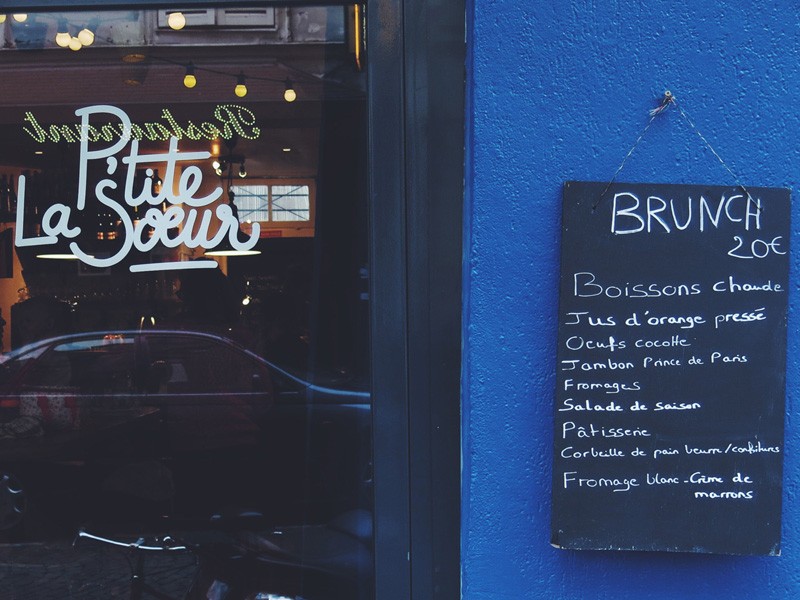 Restaurant
P'tite
La Soeur
BRUNCH
20€
Boissons chaude
Jus d'orange pressé
Oeufs cocotte
Jambon Prince de Paris
Fromages
Salade de saison
Pâtisserie
Corbeille de pain beurre/confitures
Fromage blanc - Crème de
marrons